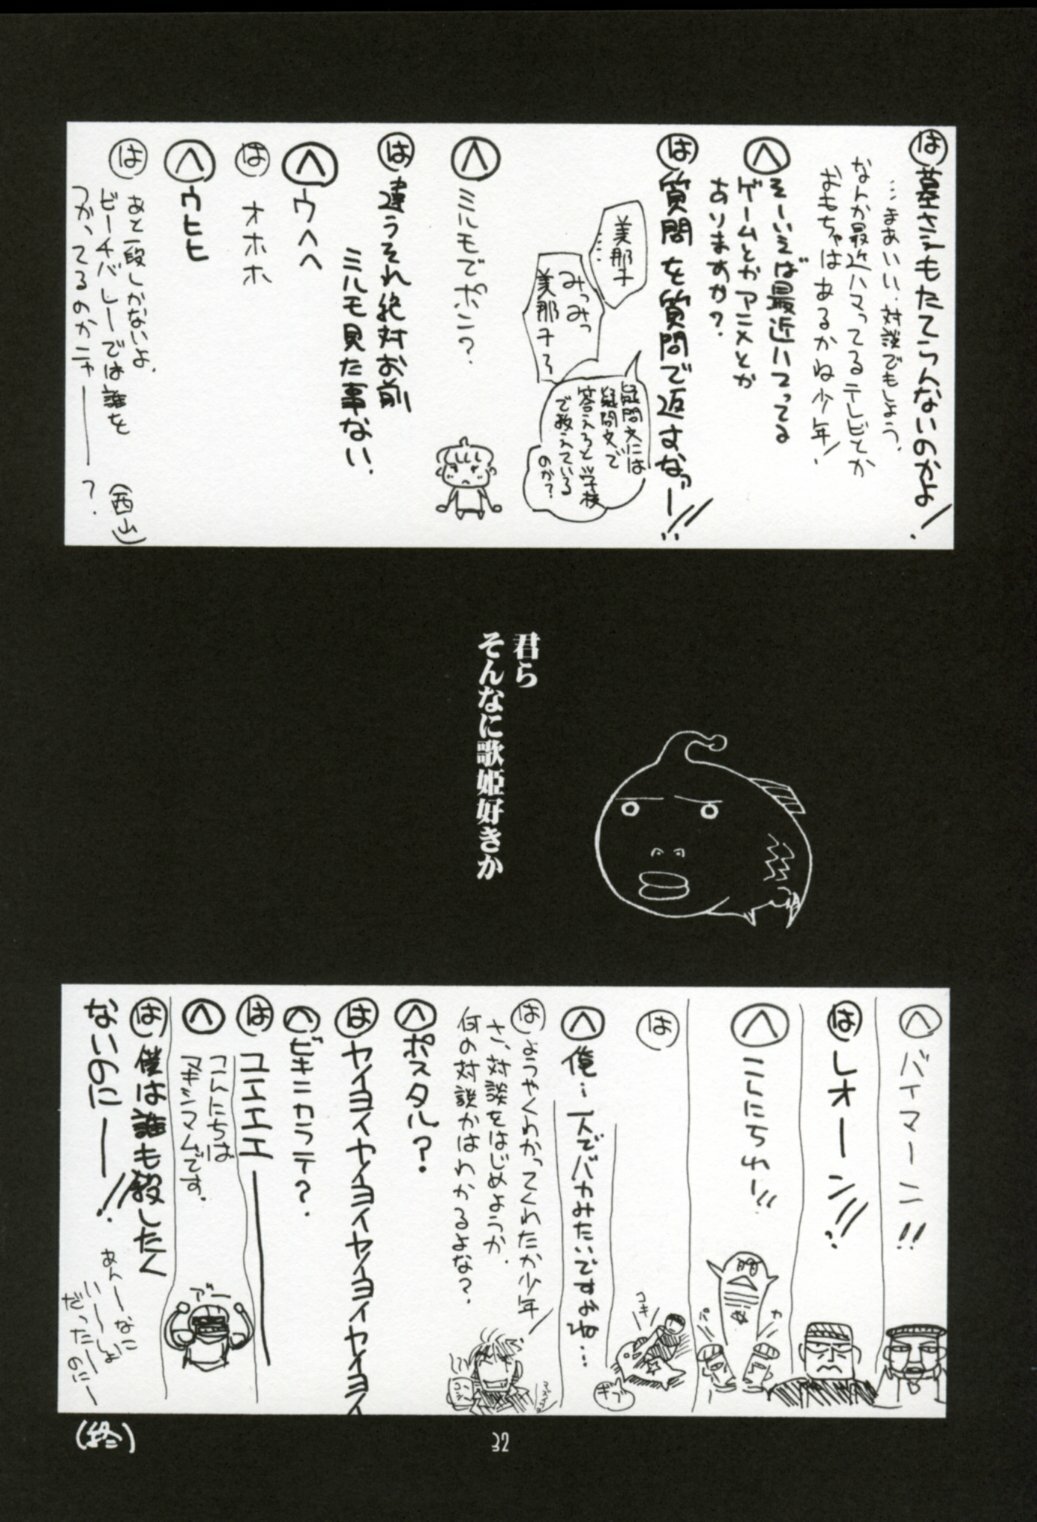 は 墓さえもたてらんないのかよ!
…まあいい、対談でもしよう、
なんか最近ハマってるテレビとか
おもちゃはあるかね少年!
へ そーいえば最近ハマってる
ゲームとかアニメとか
ありますか?
は 質問を質問で返すなーっ!!
美那子…
みっみっ
美那子ぅ
疑問文には
疑問文で
答えろと学校
で教えている
のか?
へ ミルモでポン?
は 違うそれ絶対お前
ミルモ見た事ない、
へ ウヘヘ
は オホホ
へ ウヒヒ
は あと一段しかないよ、
ビーチバレーでは誰を
つかってるのかニャーー?
(西山)
君ら
そんなに歌姫好きか
へ バイマーン!!
は レオーン!!
へ こんにちわー!!
パ
カ
は
コキ
ギュッ
へ 俺…一人でバカみたいですよね…
は ようやくわかってくれたか少年!
さ、対談をはじめようか、
何の対談かはわかるよな?、
へ ポスタル?
は ヤイヨイヤイヨイヤイヨイヤイヨイ
へ ビキニカラテ?
は ユエエエーー
へ こんにちは
マキシマムです、
は 僕は誰も殺したく
ないのにーー!!
あんーなに
いーーしょ
だったーのにー
(終)
32